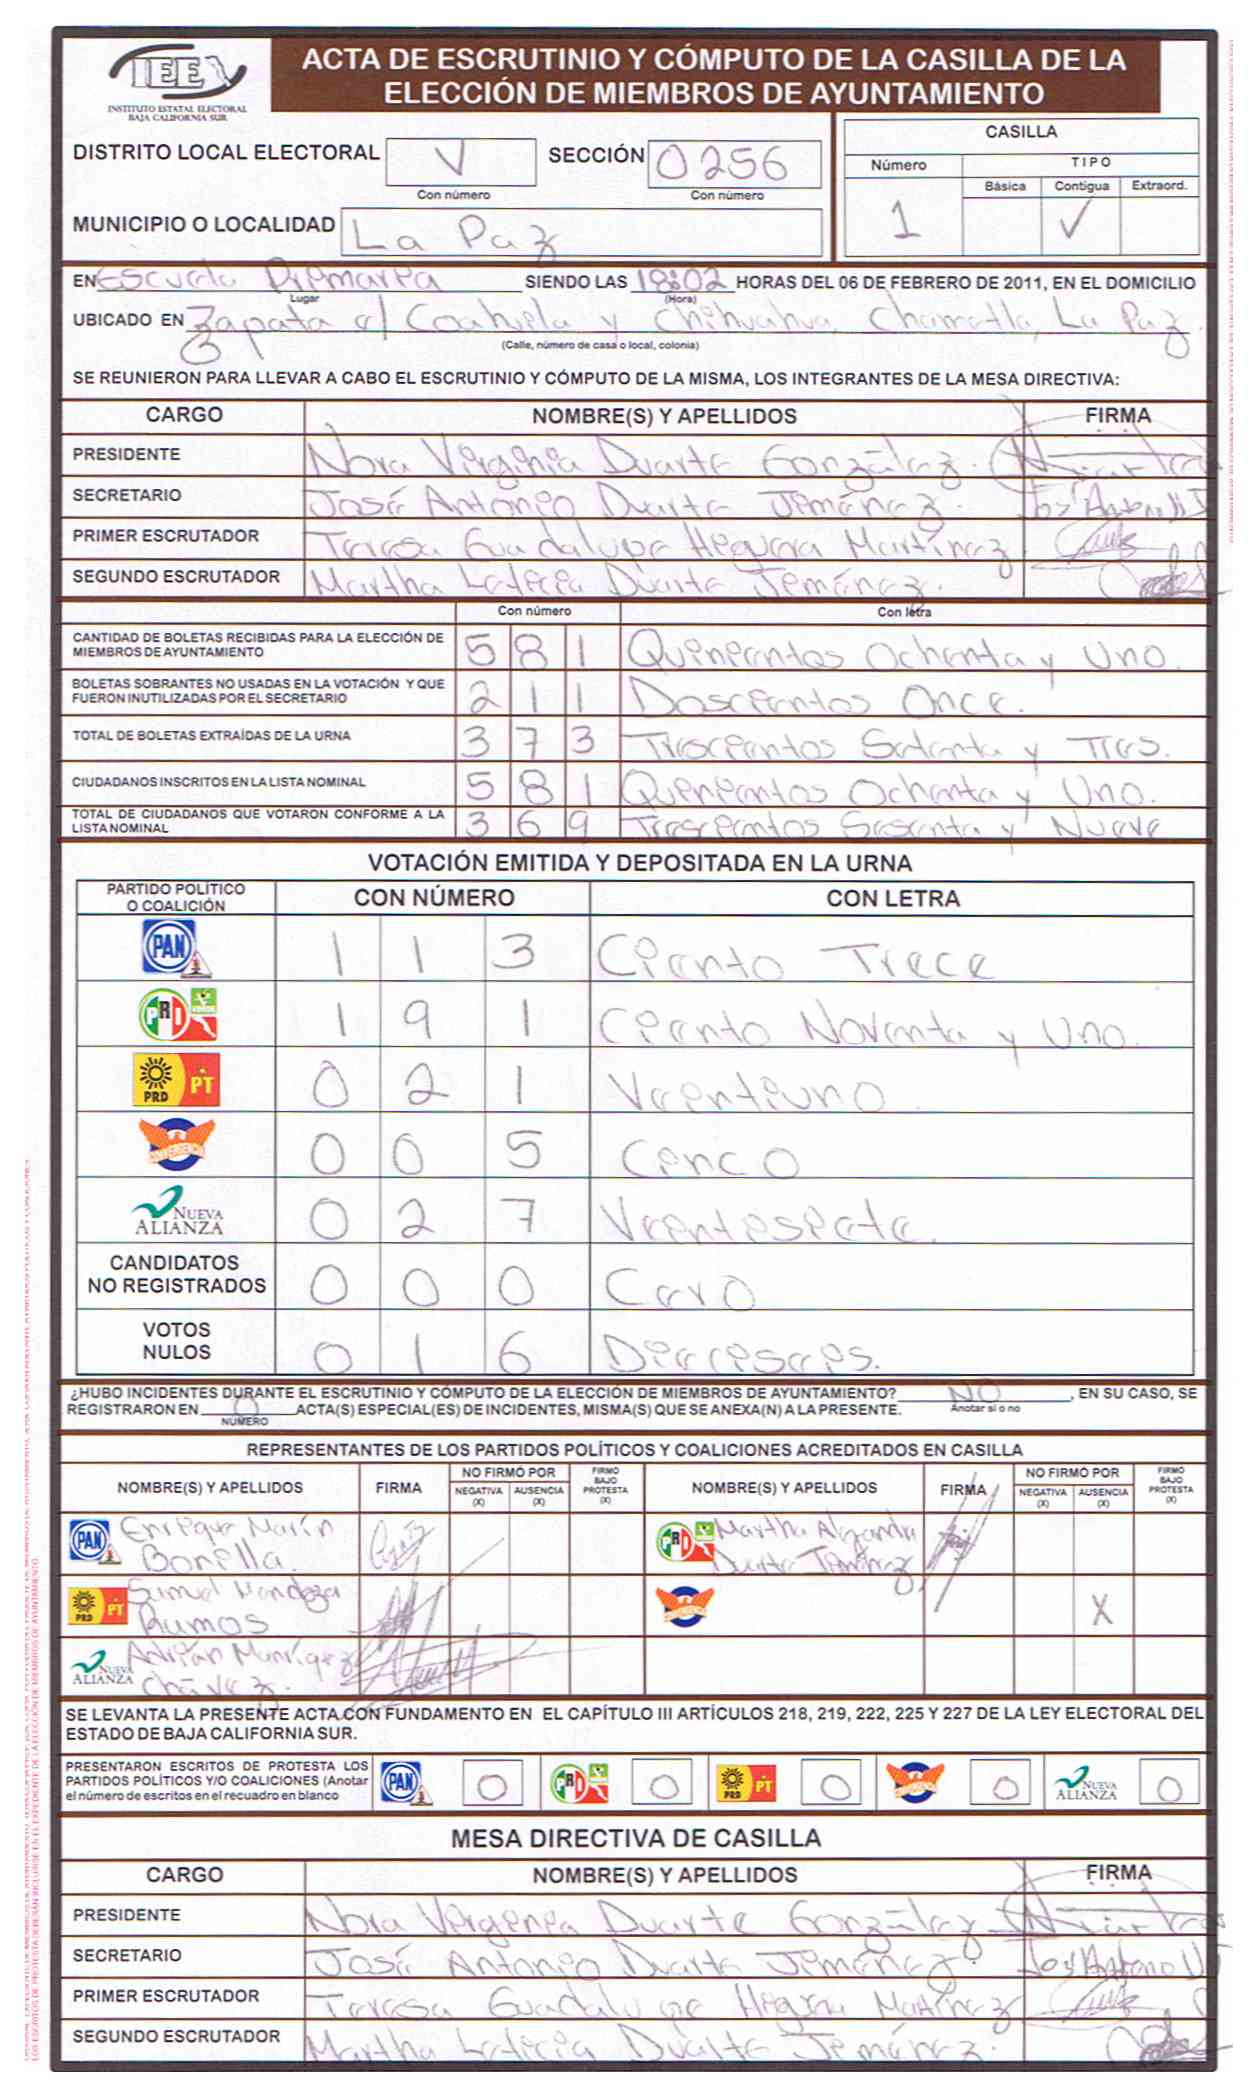 IEE
INSTITUTO ESTATAL ELECTORAL
BAJA CALIFORNIA SUR
ACTA DE ESCRUTINIO Y CÓMPUTO DE LA CASILLA DE LA
ELECCIÓN DE MIEMBROS DE AYUNTAMIENTO
DISTRITO LOCAL ELECTORAL V SECCIÓN 0256
Con número Con número
MUNICIPIO O LOCALIDAD La Paz
CASILLA
Número TIPO
Básica Contigua Extraord.
1 ✓
EN Escuela Primaria SIENDO LAS 18:02 HORAS DEL 06 DE FEBRERO DE 2011, EN EL DOMICILIO
Lugar (Hora)
UBICADO EN Zapata e/ Coahuila y Chihuahua, Chametla, La Paz.
(Calle, número de casa o local, colonia)
SE REUNIERON PARA LLEVAR A CABO EL ESCRUTINIO Y CÓMPUTO DE LA MISMA, LOS INTEGRANTES DE LA MESA DIRECTIVA:
CARGO NOMBRE(S) Y APELLIDOS FIRMA
PRESIDENTE Nora Virginia Duarte González.
SECRETARIO José Antonio Duarte Jiménez.
PRIMER ESCRUTADOR Teresa Guadalupe Higuera Martínez
SEGUNDO ESCRUTADOR Martha Leticia Duarte Jiménez.
Con número Con letra
CANTIDAD DE BOLETAS RECIBIDAS PARA LA ELECCIÓN DE
MIEMBROS DE AYUNTAMIENTO 5 8 1 Quinientos Ochenta y Uno.
BOLETAS SOBRANTES NO USADAS EN LA VOTACIÓN Y QUE
FUERON INUTILIZADAS POR EL SECRETARIO 2 1 1 Doscientos Once.
TOTAL DE BOLETAS EXTRAÍDAS DE LA URNA 3 7 3 Trescientos Setenta y Tres.
CIUDADANOS INSCRITOS EN LA LISTA NOMINAL 5 8 1 Quinientos Ochenta y Uno.
TOTAL DE CIUDADANOS QUE VOTARON CONFORME A LA
LISTA NOMINAL 3 6 9 Trescientos Sesenta y Nueve
VOTACIÓN EMITIDA Y DEPOSITADA EN LA URNA
PARTIDO POLÍTICO
O COALICIÓN CON NÚMERO CON LETRA
PAN 1 1 3 Ciento Trece
PRI VERDE 1 9 1 Ciento Noventa y Uno.
PRD PT 0 2 1 Veintiuno.
CONVERGENCIA 0 0 5 Cinco
NUEVA ALIANZA 0 2 7 Veintisiete.
CANDIDATOS
NO REGISTRADOS 0 0 0 Cero
VOTOS
NULOS 0 1 6 Dieciseis.
¿HUBO INCIDENTES DURANTE EL ESCRUTINIO Y CÓMPUTO DE LA ELECCIÓN DE MIEMBROS DE AYUNTAMIENTO? NO , EN SU CASO, SE
REGISTRARON EN 0 ACTA(S) ESPECIAL(ES) DE INCIDENTES, MISMA(S) QUE SE ANEXA(N) A LA PRESENTE. Anotar si o no
NÚMERO
REPRESENTANTES DE LOS PARTIDOS POLÍTICOS Y COALICIONES ACREDITADOS EN CASILLA
NOMBRE(S) Y APELLIDOS FIRMA NO FIRMÓ POR NEGATIVA (X) AUSENCIA (X) FIRMÓ BAJO PROTESTA (X) NOMBRE(S) Y APELLIDOS FIRMA NO FIRMÓ POR NEGATIVA (X) AUSENCIA (X) FIRMÓ BAJO PROTESTA (X)
PAN Enrique Marín
Bonilla.
PRI Martha Alejandra
Duarte Jiménez
PRD PT Samuel Mendoza
Ramos
CONVERGENCIA X
NUEVA ALIANZA Adrián Manríquez
Chávez.
SE LEVANTA LA PRESENTE ACTA CON FUNDAMENTO EN EL CAPÍTULO III ARTÍCULOS 218, 219, 222, 225 Y 227 DE LA LEY ELECTORAL DEL
ESTADO DE BAJA CALIFORNIA SUR.
PRESENTARON ESCRITOS DE PROTESTA LOS
PARTIDOS POLÍTICOS Y/O COALICIONES (Anotar
el número de escritos en el recuadro en blanco
PAN 0 PRI 0 PRD PT 0 CONVERGENCIA 0 NUEVA ALIANZA 0
MESA DIRECTIVA DE CASILLA
CARGO NOMBRE(S) Y APELLIDOS FIRMA
PRESIDENTE Nora Virginia Duarte González
SECRETARIO José Antonio Duarte Jiménez.
PRIMER ESCRUTADOR Teresa Guadalupe Higuera Martínez
SEGUNDO ESCRUTADOR Martha Leticia Duarte Jiménez.
LOS ESCRITOS DE PROTESTA DEBERÁN INCLUIRSE EN EL EXPEDIENTE DE LA ELECCIÓN DE MIEMBROS DE AYUNTAMIENTO.